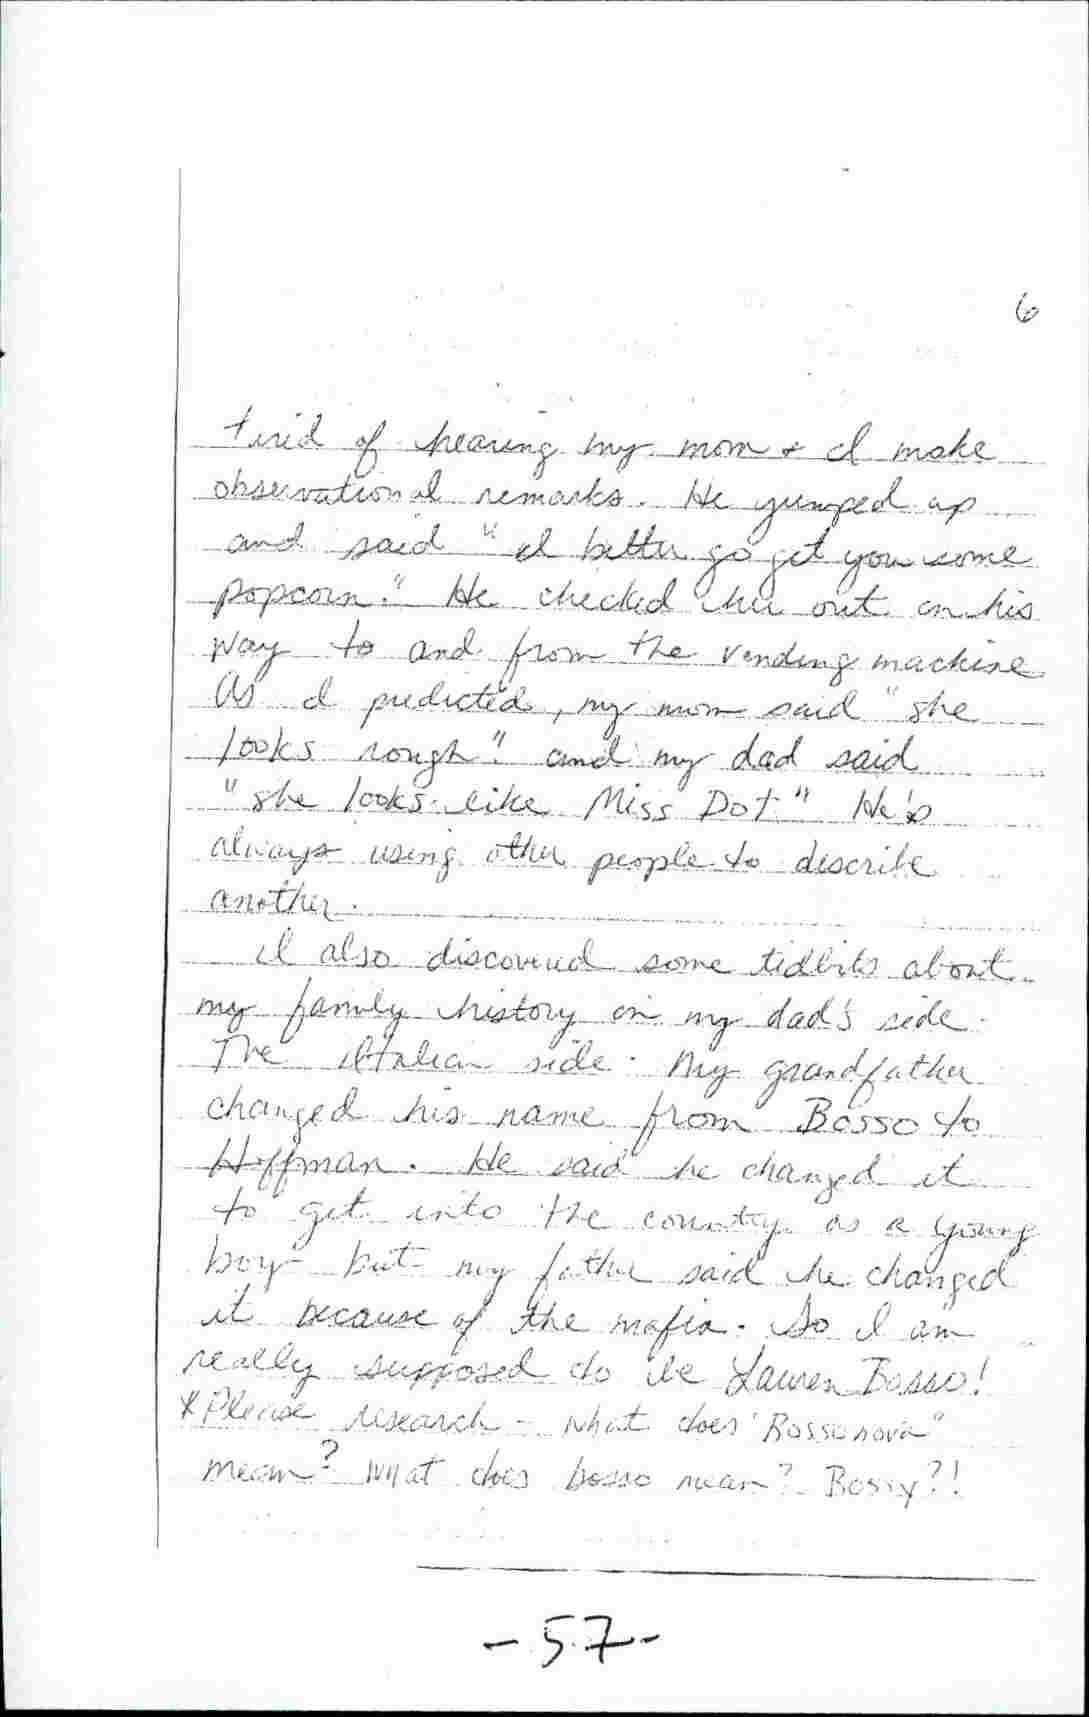 6
tired of hearing my mom & I make
observational remarks. He jumped up
and said "I better go get you some
popcorn." He checked her out on his
way to and from the vending machine
As I predicted, my mom said "she
looks rough". and my dad said
"she looks like Miss Dot" He's
always using other people to describe
another.
I also discovered some tidbits about
my family history on my dad's side.
The Italian side. My grandfather
changed his name from Bosso to
Hoffman. He said he changed it
to get into the country as a young
boy but my father said he changed
it because of the mafia. So I am
really supposed to be Lauren Bosso!
*Please research - what does "Bossonova"
mean? What does bosso mean? Bossy?!
- 57 -